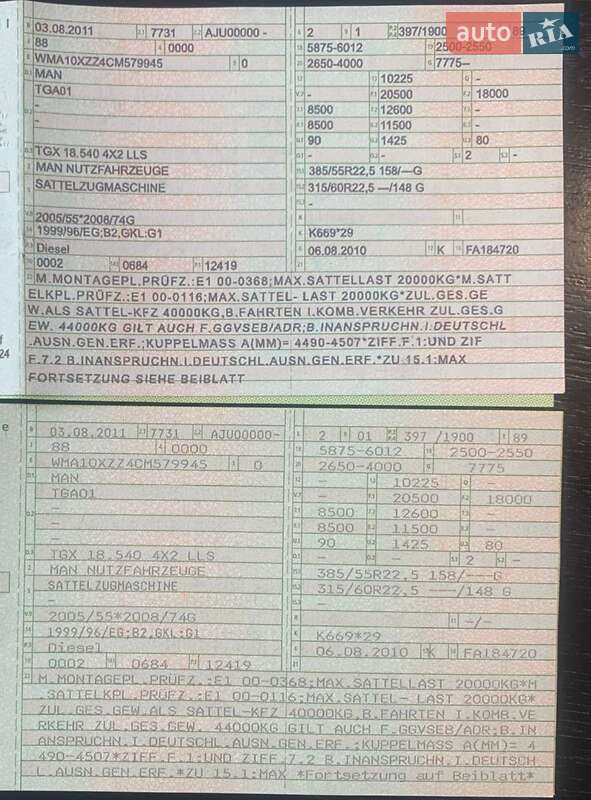 auto RIA.com
03.08.2011 7731 AJU00000 - 2 1 397/1900 89
88 0000 5875-6012 2500-2550
WMA10XZZ4CM579945 0 2650-4000 7775—
MAN - 10225 -
TGA01 - 20500 18000
- 8500 12600 -
- 8500 11500 -
- 90 1425 80
TGX 18.540 4X2 LLS - - 2 -
MAN NUTZFAHRZEUGE 385/55R22,5 158/—G
SATTELZUGMASCHINE 315/60R22,5 —/148 G
-
2005/55*2008/74G
1999/96/EG;B2,GKL:G1 K669*29
Diesel 06.08.2010 K FA184720
0002 0684 12419
M.MONTAGEPL.PRÜFZ.:E1 00-0368;MAX.SATTELLAST 20000KG*M.SATT
ELKPL.PRÜFZ.:E1 00-0116;MAX.SATTEL- LAST 20000KG*ZUL.GES.GE
W.ALS SATTEL-KFZ 40000KG,B.FAHRTEN I.KOMB.VERKEHR ZUL.GES.G
EW. 44000KG GILT AUCH F.GGVSEB/ADR;B.INANSPRUCHN.I.DEUTSCHL
.AUSN.GEN.ERF.;KUPPELMASS A(MM)= 4490-4507*ZIFF.F.1:UND ZIF
F.7.2 B.INANSPRUCHN.I.DEUTSCHL.AUSN.GEN.ERF.*ZU 15.1:MAX
FORTSETZUNG SIEHE BEIBLATT
24
e
03.08.2011 7731 AJU00000- 2 01 397 /1900 89
88 0000 5875-6012 2500-2550
WMA10XZZ4CM579945 0 2650-4000 7775
MAN - 10225 -
TGA01 - 20500 18000
- 8500 12600 -
- 8500 11500 -
- 90 1425 80
TGX 18.540 4X2 LLS - - 2 -
MAN NUTZFAHRZEUGE 385/55R22.5 158/---G
SATTELZUGMASCHINE 315/60R22.5 ---/148 G
- -
2005/55*2008/74G -/-
1999/96/EG;B2,GKL:G1 K669*29
Diesel 06.08.2010 K FA184720
0002 0684 12419
M.MONTAGEPL.PRÜFZ.:E1 00-0368;MAX.SATTELLAST 20000KG*M
.SATTELKPL.PRÜFZ.:E1 00-0116;MAX.SATTEL- LAST 20000KG*
ZUL.GES.GEW.ALS SATTEL-KFZ 40000KG,B.FAHRTEN I.KOMB.VE
RKEHR ZUL.GES.GEW. 44000KG GILT AUCH F.GGVSEB/ADR;B.IN
ANSPRUCHN.I.DEUTSCHL.AUSN.GEN.ERF.;KUPPELMASS A(MM)= 4
490-4507*ZIFF.F.1:UND ZIFF.7.2 B.INANSPRUCHN.I.DEUTSCH
L.AUSN.GEN.ERF.*ZU 15.1:MAX *Fortsetzung auf Beiblatt*